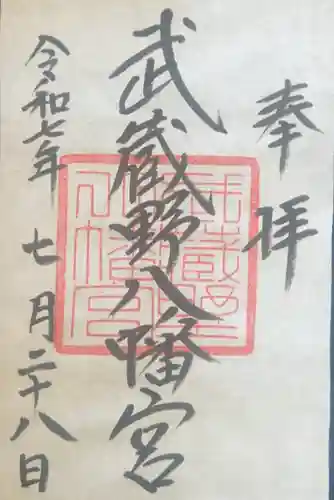 奉拝
武蔵野八幡宮
令和七年 七月二十八日
武蔵野
八幡宮